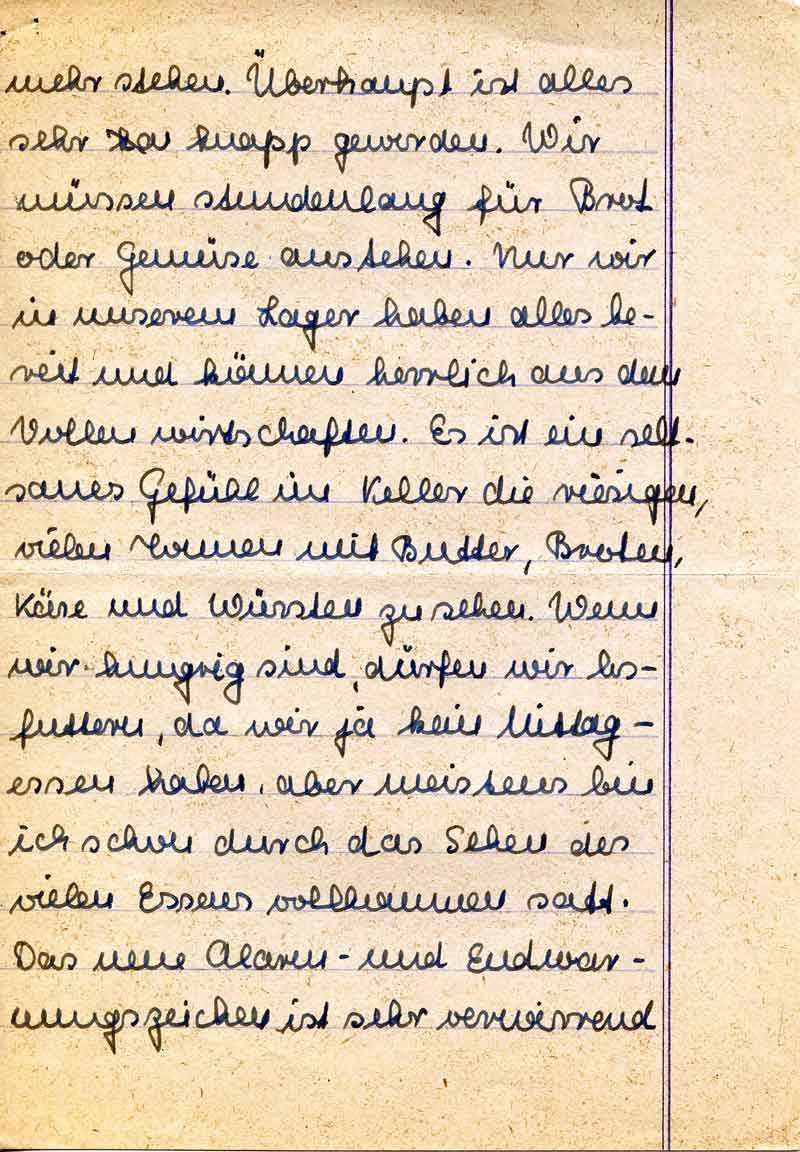 mehr stehen. Überhaupt ist alles
sehr knapp geworden. Wir
müssen stundenlang für Brot
oder Gemüse anstehen. Nur wir
in unserem Lager haben alles be-
reit und können herrlich aus dem
Vollen wirtschaften. Es ist ein selt-
sames Gefühl im Keller die riesigen,
vielen Tonnen mit Butter, Broten,
Käse und Würsten zu sehen. Wenn
wir hungrig sind, dürfen wir los-
futtern, da wir ja kein Mittag-
essen haben, aber meistens bin
ich schon durch das Sehen des
vielen Essens vollkommen satt.
Das neue Alarm- und Endwar-
nungszeichen ist sehr verwirrend